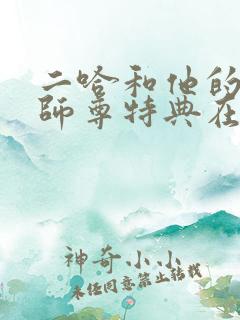 二哈和他的
師尊特典在
神奇小小
未经同意禁止转载